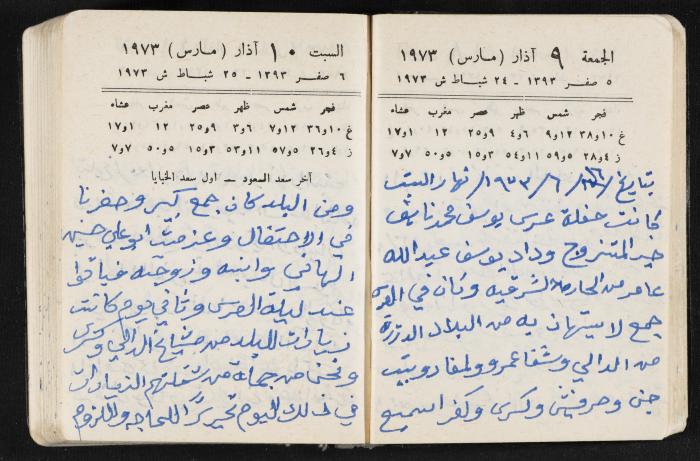 الجمعة ٩ آذار (مارس) ١٩٧٣
٥ صفر ١٣٩٣ - ٢٤ شباط ش ١٩٧٣
فجر شمس ظهر عصر مغرب عشاء
غ ١٠و٣٨ ١٢و٩ ٦و٤ ٩و٢٥ ١٢ ١و١٧
ز ٤و٢٨ ٥و٥٩ ١١و٥٤ ٣و١٥ ٥و٥٠ ٧و٧
بتاريخ / ٦ / ١٩٧٣ / نهار السبت
كانت حفلة عرس يوسف محمد نايف
خير المتزوج وداد يوسف عبد الله
عامر من الحارة الشرقيه وكان في العرس
جمع لا يستهان به من البلاد الدرزية
من الدالي وشفا عمرو والمغار وبيت
جن وحرفيش وكسرى وكفر اسميع
السبت ١٠ آذار (مارس) ١٩٧٣
٦ صفر ١٣٩٣ - ٢٥ شباط ش ١٩٧٣
فجر شمس ظهر عصر مغرب عشاء
غ ١٠و٣٦ ١٢و٧ ٦و٣ ٩و٢٥ ١٢ ١و١٧
ز ٤و٢٦ ٥و٥٧ ١١و٥٣ ٣و١٥ ٥و٥٠ ٧و٧
آخر سعد السعود - اول سعد الخبايا
ومن البلد كان جمع كبير وحضرنا
في الاحتفال وعزمت ابو علي حسين
الهاني وابنه وزوجته فباتوا
عند ليلة العرس وثاني يوم كانت
زيارات للبلد من مشايخ الدالي وكسرى
ونحن من جملة من شملتهم الزيارات
في ذلك اليوم تحريرًا للحاجه واللزوم